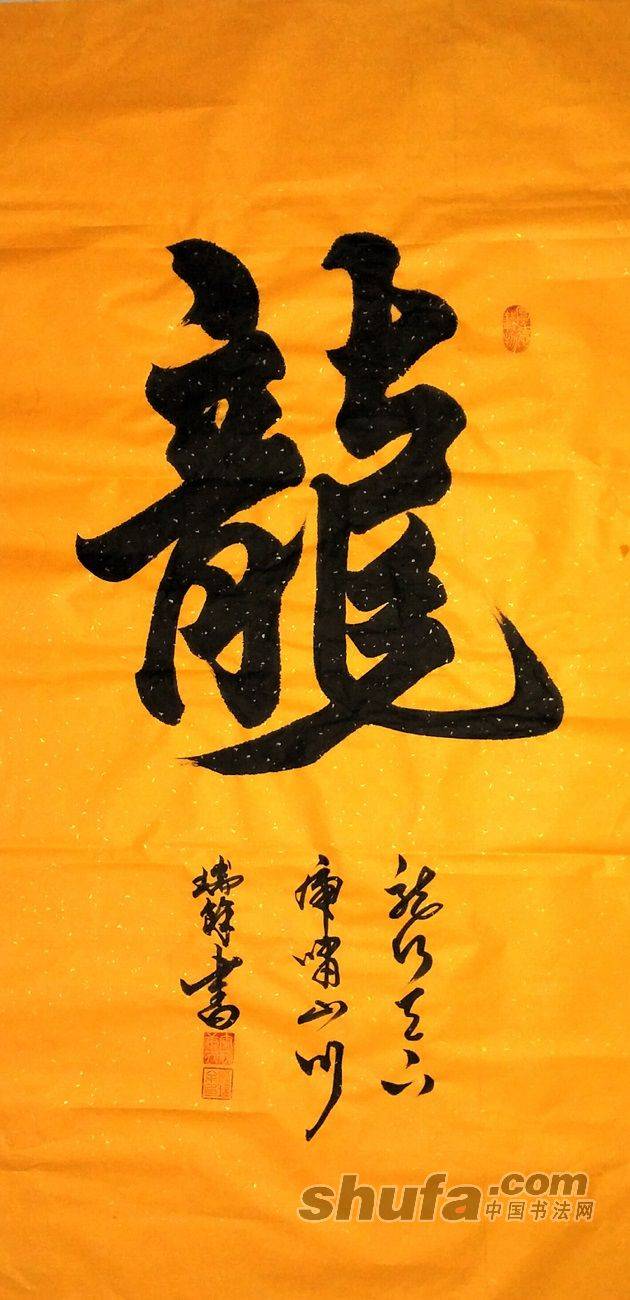 龍
龙行天下
虎啸山川
瑞馀書
shufa.com
中国书法网